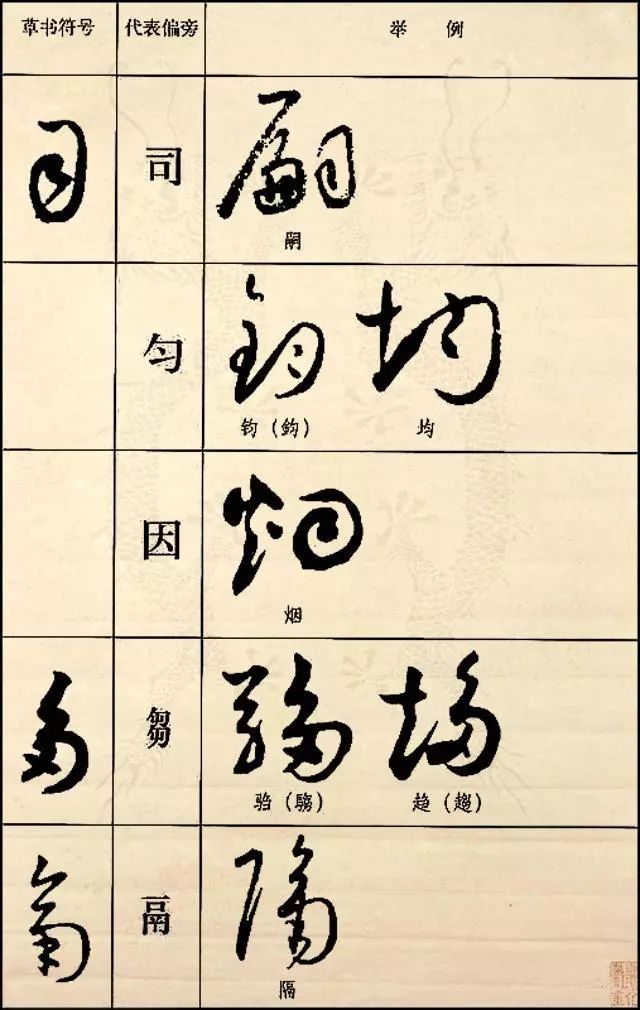 草书符号 代表偏旁 举 例
司
嗣
匀
钧（鈞） 均
因
烟
芻
驺（騶） 趋（趨）
鬲
隔